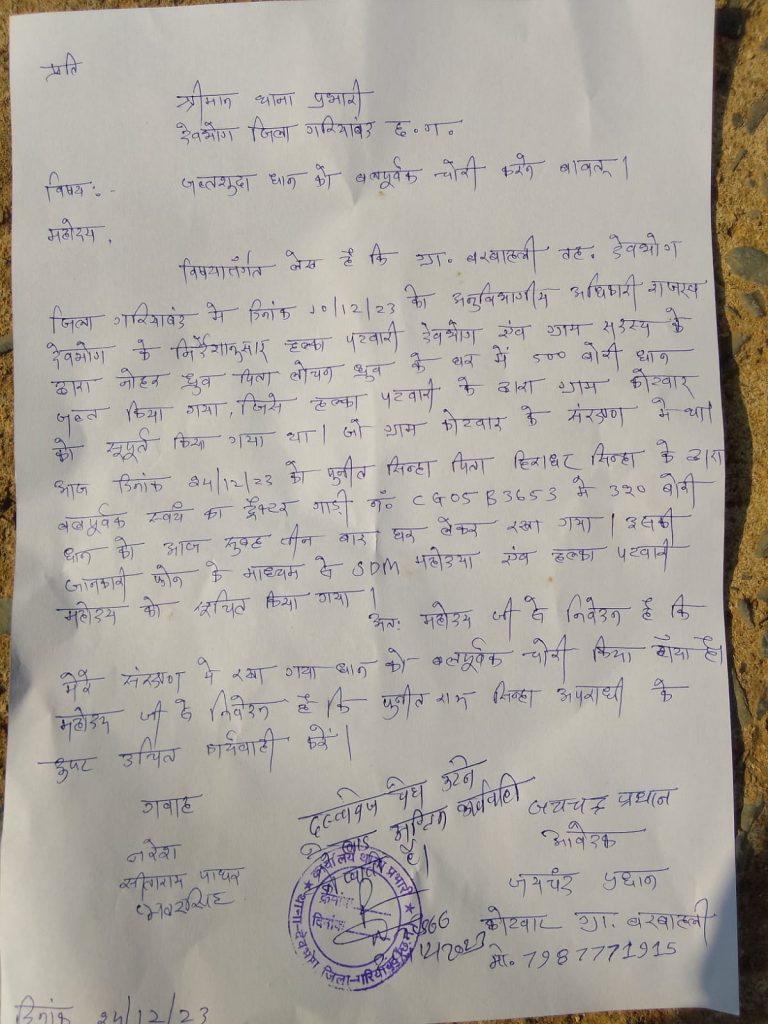 प्रति
श्रीमान थाना प्रभारी
देवभोग जिला गरियाबंद छ.ग.
विषय:- जप्तशुदा धान को बलपूर्वक चोरी करने बाबत्।
महोदय,
विषयांतर्गत लेख है कि ग्रा. बरबाहली तह. देवभोग
जिला गरियाबंद में दिनांक 10/12/23 को अनुविभागीय अधिकारी राजस्व
देवभोग के निर्देशानुसार हल्का पटवारी देवभोग एवं ग्राम सदस्य के
द्वारा नोहर ध्रुव पिता लोचन ध्रुव के घर में 500 बोरी धान
जप्त किया गया, जिसे हल्का पटवारी के द्वारा ग्राम कोटवार
को सुपूर्त किया गया था। जो ग्राम कोटवार के संरक्षण में था।
आज दिनांक 24/12/23 को पुनीत सिन्हा पिता हिराधर सिन्हा के द्वारा
बलपूर्वक स्वयं का ट्रैक्टर गाड़ी नं. CG05B3653 में 320 बोरी
धान को आज सुबह तीन बार घर लेकर रखा गया। इसकी
जानकारी फोन के माध्यम से SDM महोदया एवं हल्का पटवारी
महोदय को सूचित किया गया।
अतः महोदय जी से निवेदन है कि
मेरे संरक्षण में रखा गया धान को बलपूर्वक चोरी किया गया है।
महोदय जी से निवेदन है कि पुनीत राम सिन्हा अपराधी के
उपर उचित कार्यवाही करें।
गवाह
नरेश
सीताराम पाथर
भवरसिंह
दस्तावेज पेश करने
के बाद अग्रिम कार्यवाही
की जाती है।
कार्यालय थाना प्रभारी
क्रमांक
दिनांक
थाना-देवभोग जिला-गरियाबंद
जयचंद्र प्रधान
आवेदक
जयचंद प्रधान
कोटवार ग्रा. बरबाहली
मो. 7987771915
दिनांक 24/12/23